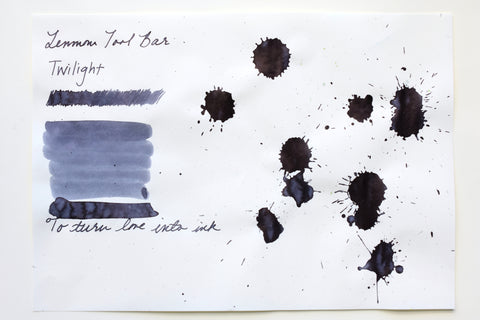 Lennon Tool Bar
Twilight
To turn love into ink